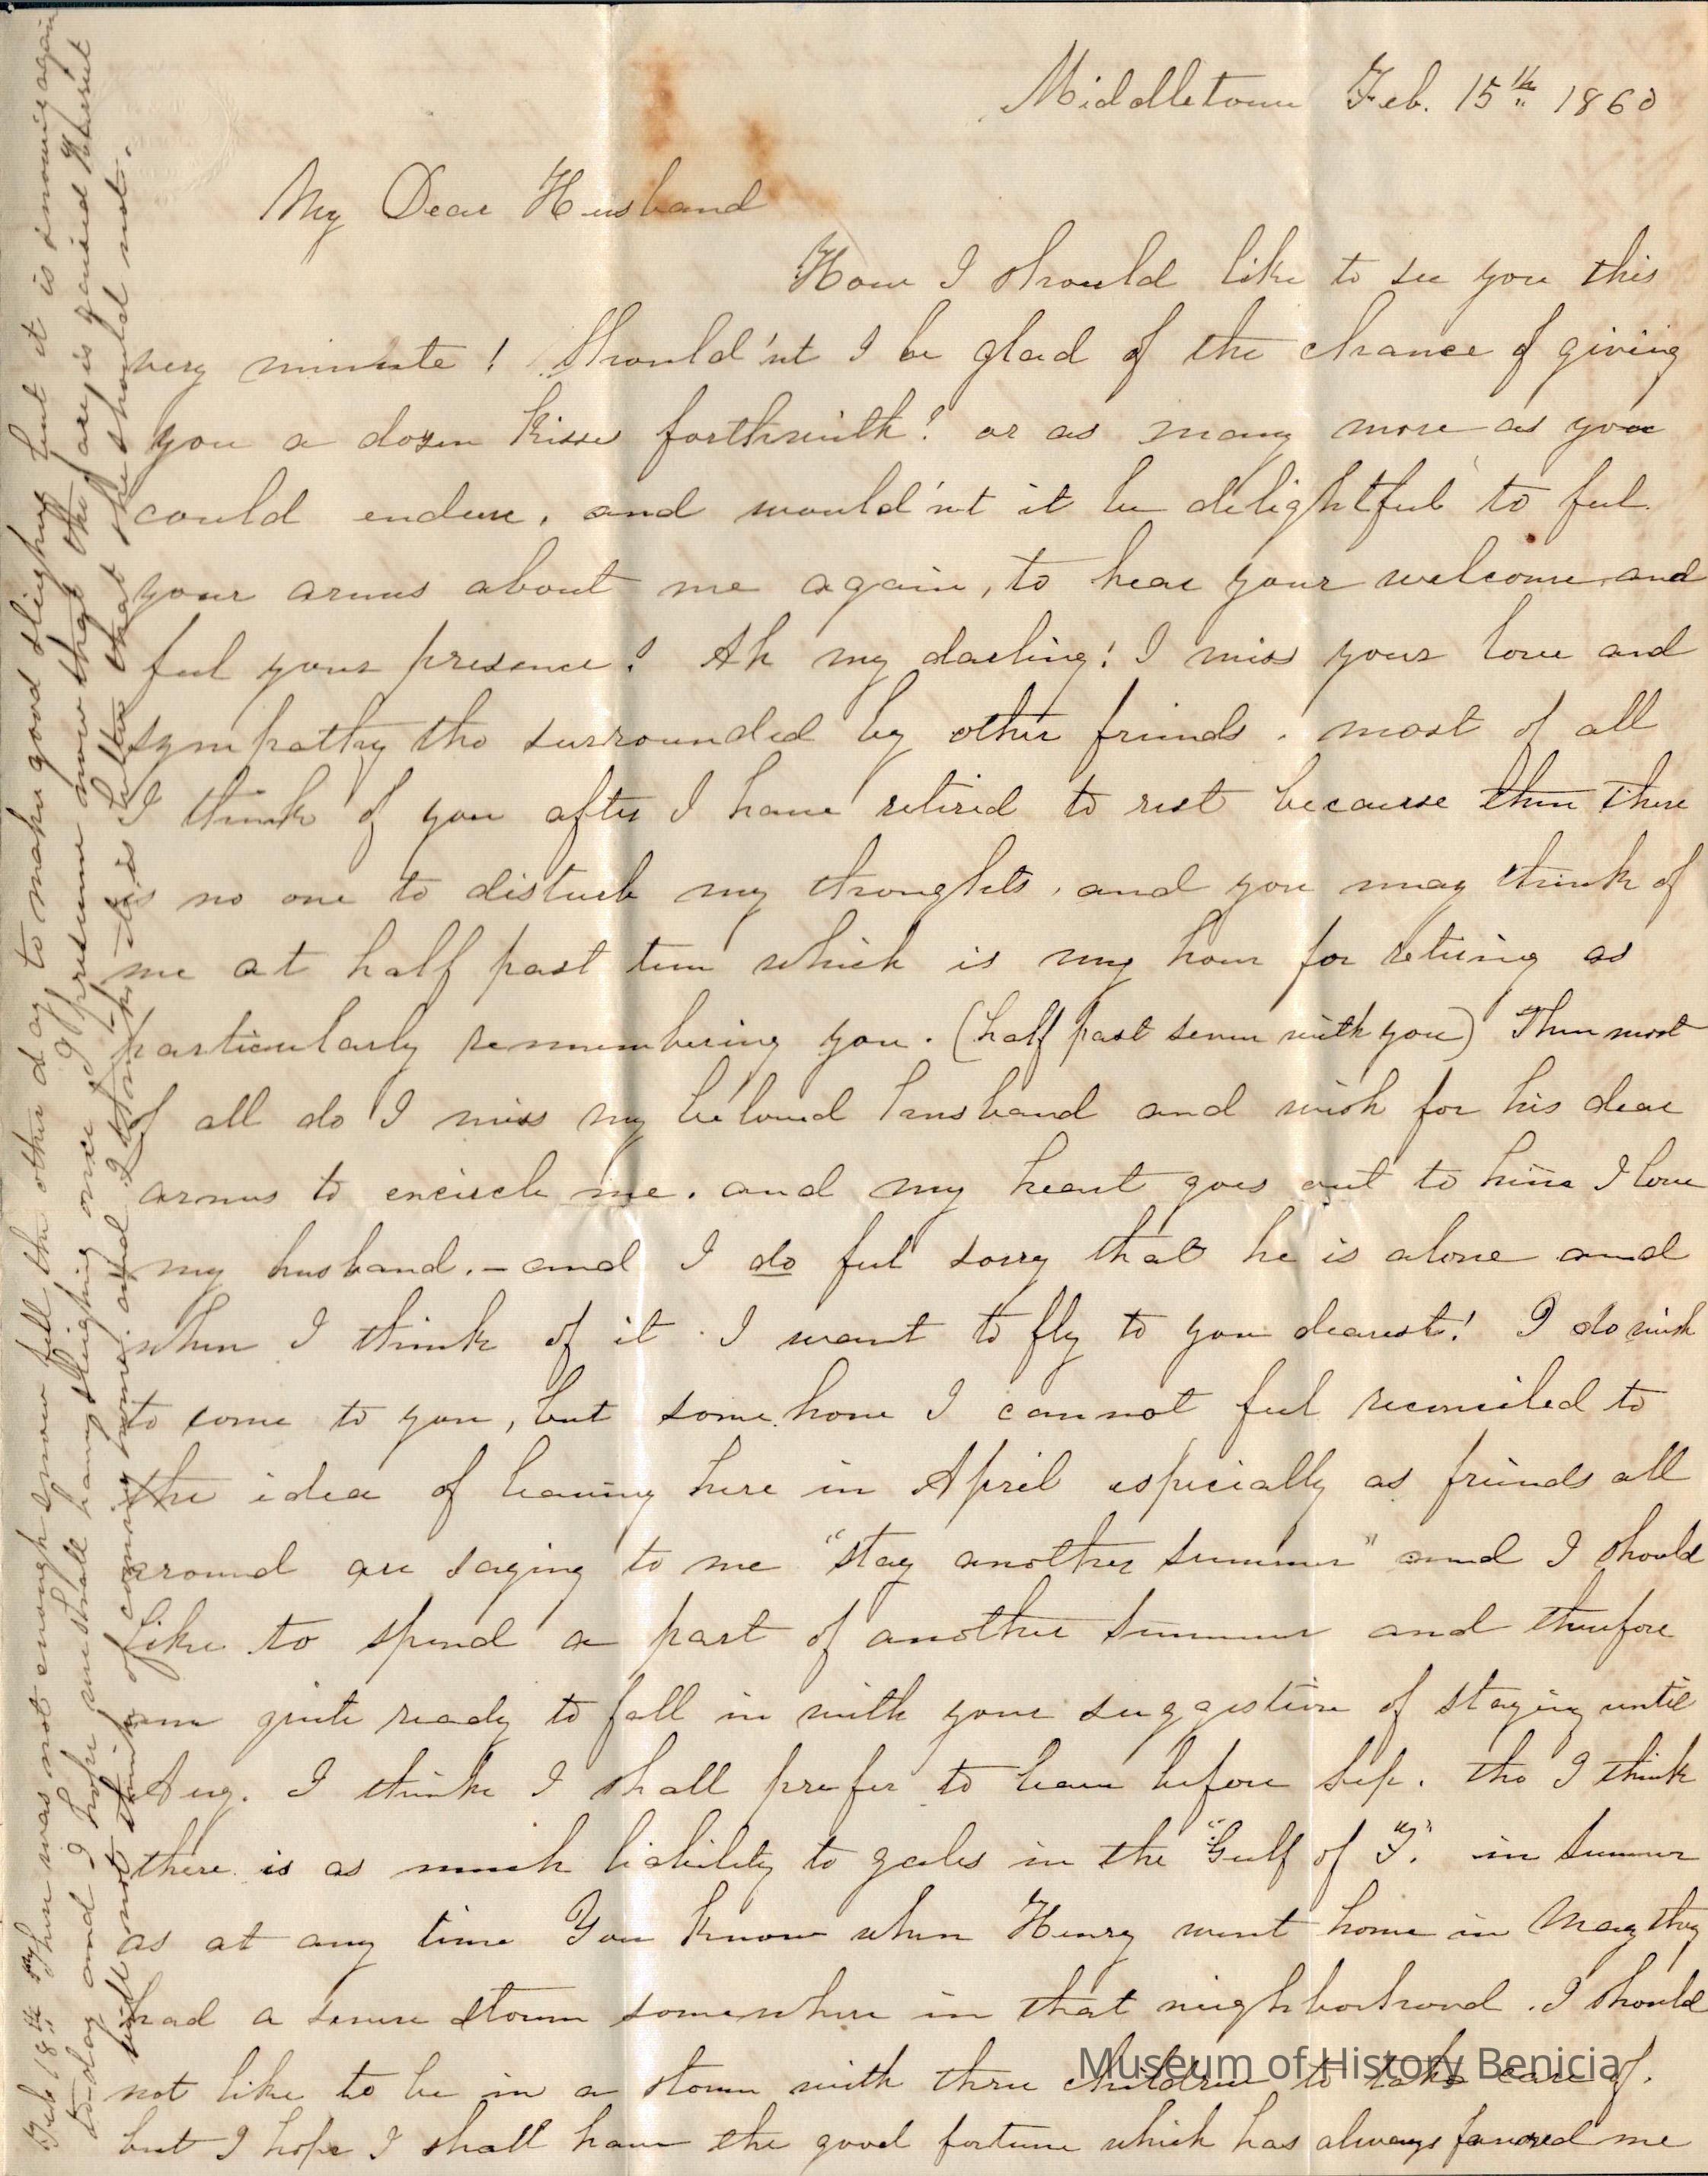 Middletown Feb. 15th 1860
My Dear Husband
How I should like to see you this
very minute! Should'nt I be glad of the chance of giving
you a dozen kisses forthwith! or as many more as you
could endure, and would'nt it be delightful to feel
your arms about me again, to hear your welcome and
feel your presence! Ah my darling! I miss your love and
sympathy tho surrounded by other friends. most of all
I think of you after I have retired to rest because then there
is no one to disturb my thoughts, and you may think of
me at half past ten which is my hour for retiring as
particularly remembering you. (half past seven with you) Then most
of all do I miss my beloved husband and wish for his dear
arms to encircle me. and my heart goes out to him I love
my husband. – and I do feel sorry that he is alone and
when I think of it I want to fly to you dearest! I do wish
to come to you, but some how I cannot feel reconciled to
the idea of leaving here in April especially as friends all
around are saying to me "stay another summer" and I should
like to spend a part of another summer and therefore
am quite ready to fall in with your suggestion of staying until
Aug. I think I shall prefer to leave before Sep. tho I think
there is as much liability to gales in the "Gulf of T." in summer
as at any time You know when Henry went home in May they
had a severe storm somewhere in that neighborhood. I should
not like to be in a storm with three children to take care of.
but I hope I shall have the good fortune which has always favored me
Feb 18th There was not enough snow fell the other day to make good sleighing but it is snowing again
today and I hope we shall have sleighing once I presume now that the fare is raised Harriet
will not think of coming home. and I it is better that she should not.
Museum of History Benicia